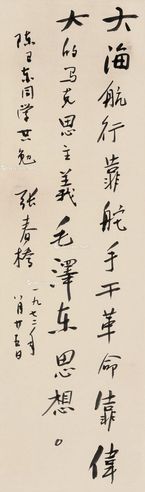 大海航行靠舵手干革命靠偉
大的马克思主義毛澤东思想。
陈卫东同学共勉 张春橋
一九七二年
八月廿五日